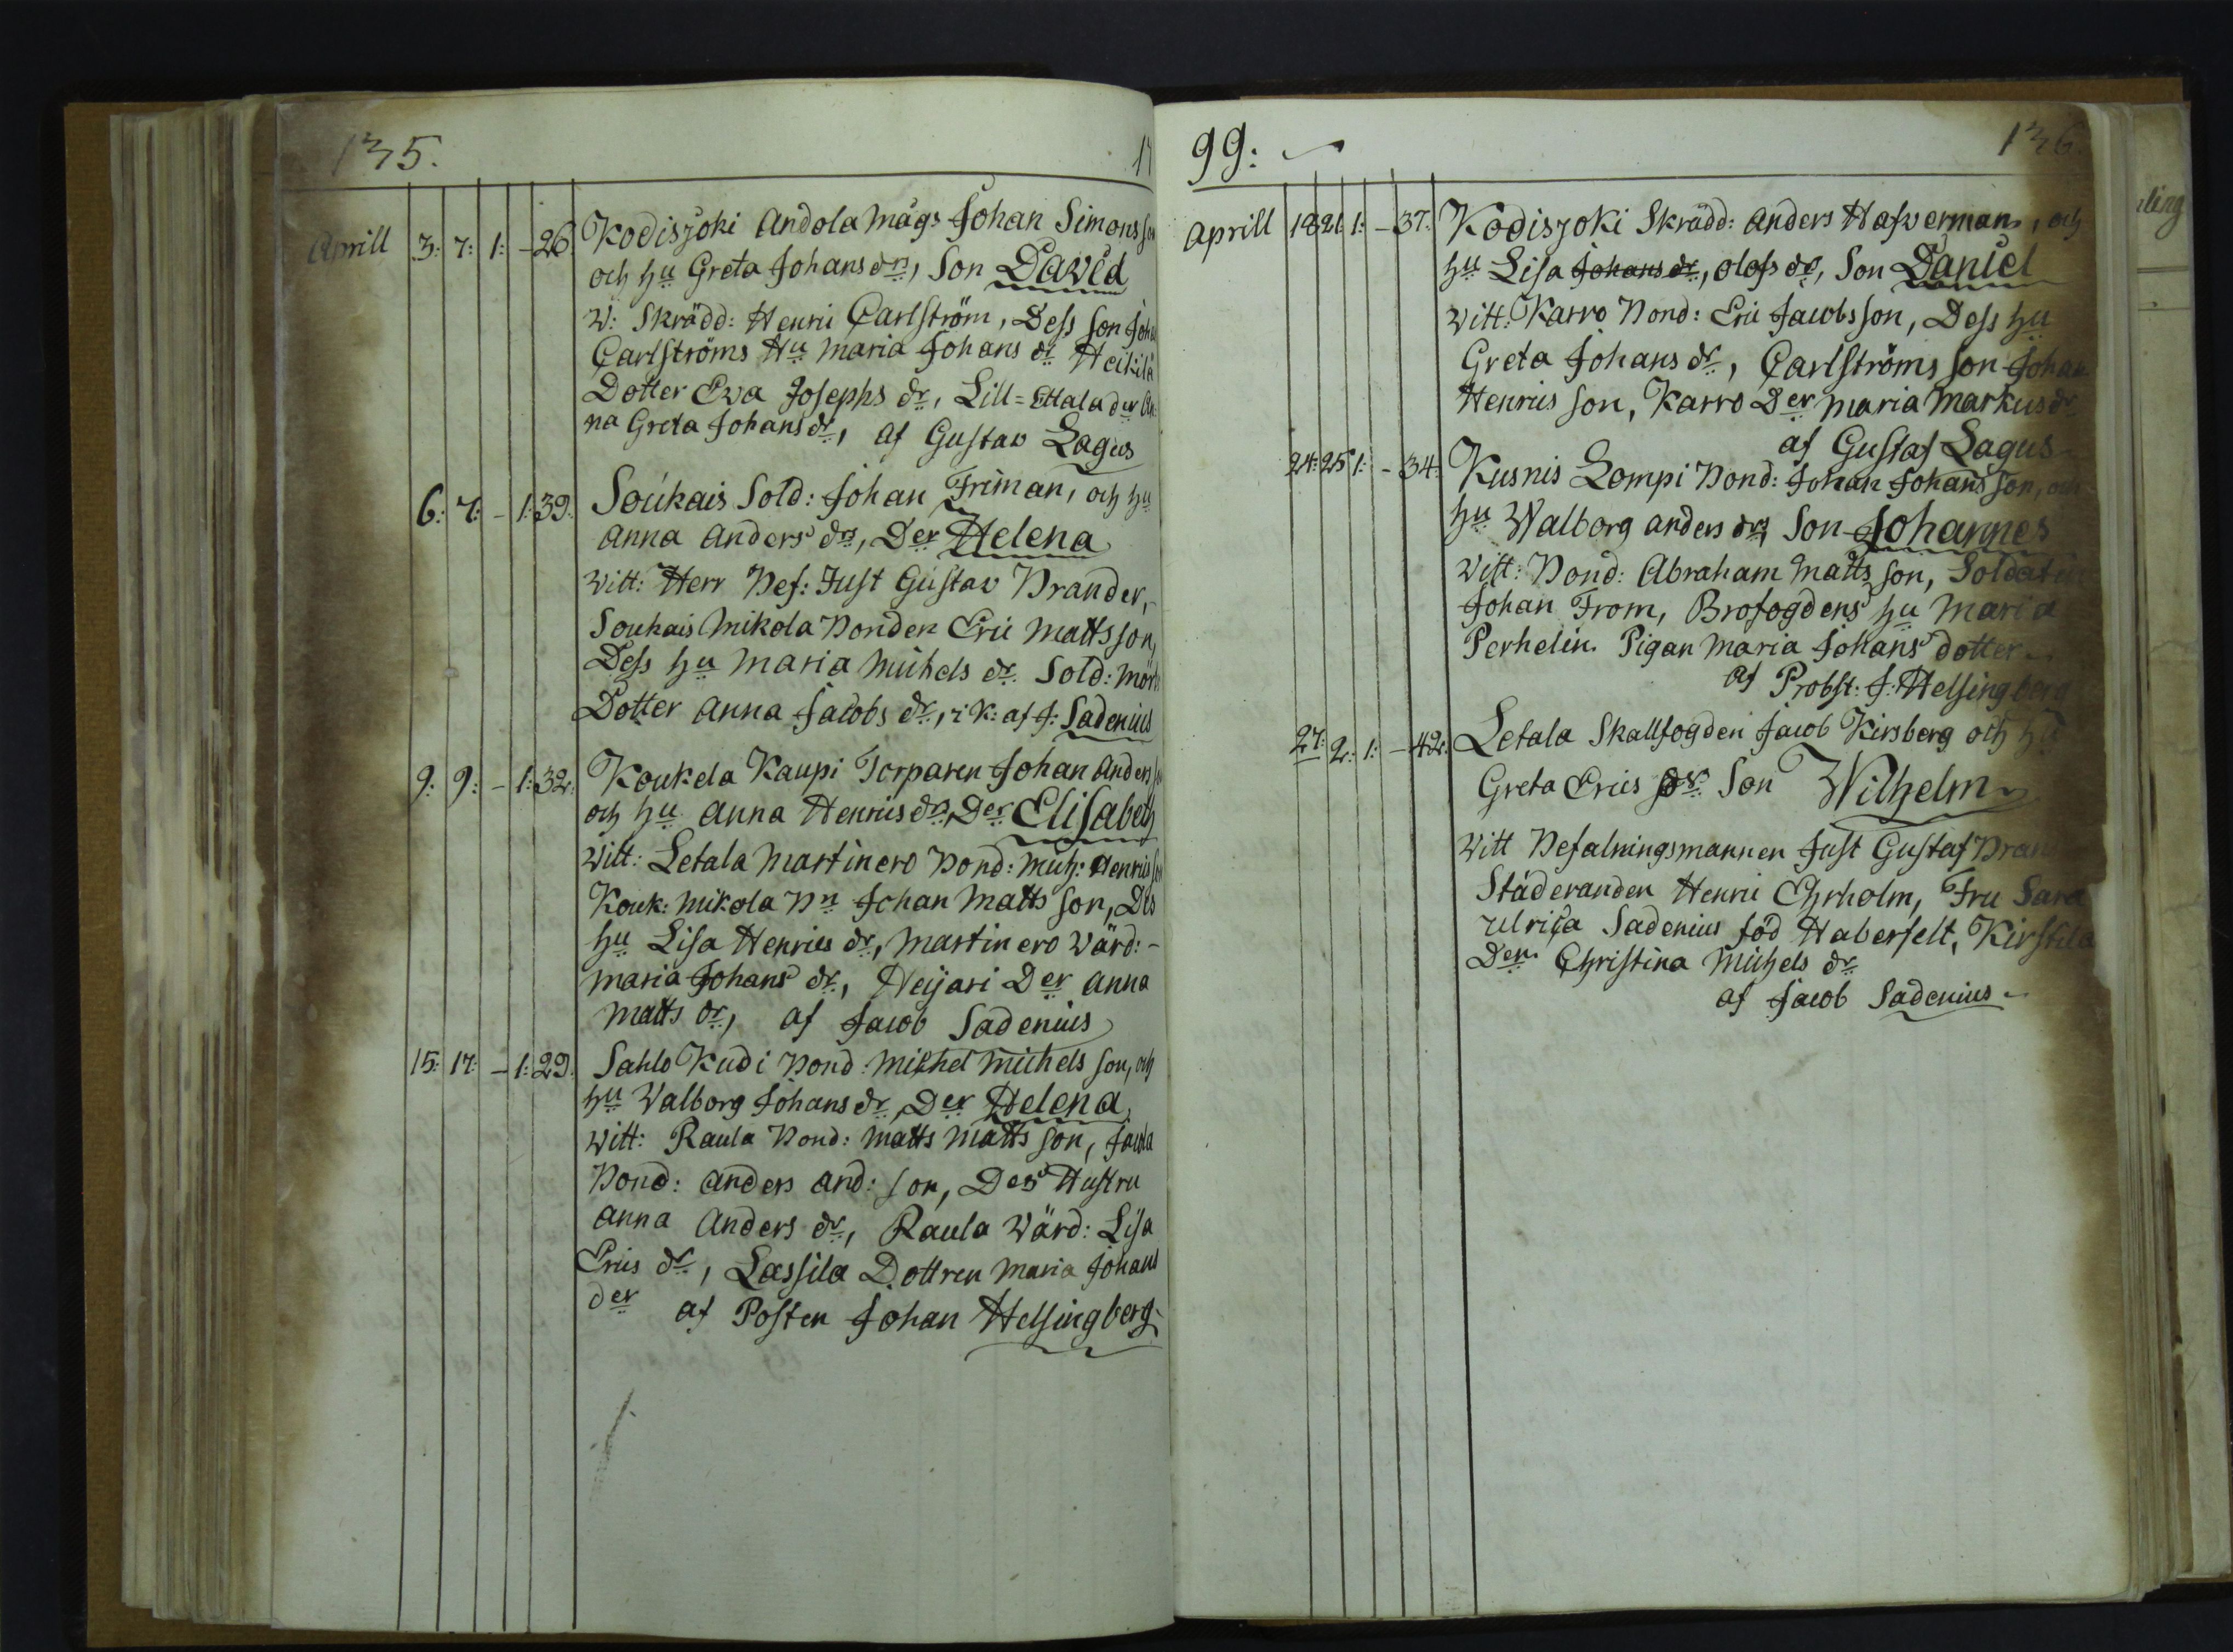 135.
17
Aprill 3: 7: 1: - 26. Kodisjoki Andola mågs Johan Simons son
och hu Greta Johans drs, Son David
W: Skrädd: Henric Carlström, Dess Son Joha
Carlströms Hu Maria Johans dr Heikilä
Dotter Ewa Josephs dr, Lill=Ettala der An
na Greta Johans dr, af Gustav Lagus
6: 7: - 1: 39. Soukais Sold: Johan Friman, och hu
Anna Anders drs, Der Helena
Witt: Herr Bef: Just Gustav Brander,
Soukais Mikola Bonden Eric Mattsson,
Dess hu Maria Michels dr. Sold: Mörk
Dotter Anna Jacobs dr, i K: af J: Sadenius
9: 9: - 1: 32. Koukela Kaupi Torparen Johan Anders son
och hu Anna Henrics drs, Der Elisabeth
Witt: Letala Martinero Bond: Mich: Henrics son
Kouk: Mikola Bn Johan Matts son, Des
hu Lisa Henrics dr, Martinero Wärd: -
Maria Johans dr, Heijari Der Anna
Matts dr, af Jacob Sadenius
15: 17: - 1: 29. Sahlo Kudi Bond: Michel Michels son, och
hu Walborg Johans dr, Der Helena
Witt: Raula Bond: Matts Matts son,
Bond: Anders And: son, Des Hustru
Anna Anders dr, Raula Wärd: Lisa
Erics dr, Lassila Dottren Maria Johans
der af Posten Johan Helsingberg
99:
136.
Aprill 18 21 1: - 37. Kodisjoki Skrädd: Anders Hafverman, och
hu Lisa Johans dr, Olofs dr, Son Daniel
Witt: Karro Bond: Eric Jacobs son, Dess hu
Greta Johans dr, Carlströms son Johan
Henrics son, Karro Der Maria Markus dr
af Gustaf Lagus
24: 25 1: - 34. Kusnis Lempi Bond: Johan Johans son, och
hu Walborg Anders drs, Son Johannes
Witt: Bond: Abraham Matts son, Soldaten
Johan From, Brofogdens hu Maria
Perhelin. Pigan Maria Johans dotter
af Probst: J: Helsingberg
27: 2: 1: - 42. Letala Skallfogden Jacob Kirsberg och hu
Greta Erics dr. Son Wilhelm
Witt Befalningsmannen Just Gustaf Bran
Städeranden Henric Ehrholm, Fru Sara
Ulrica Sadenius föd Haberfelt, Kirstila
Der. Christina Michels dr
af Jacob Sadenius